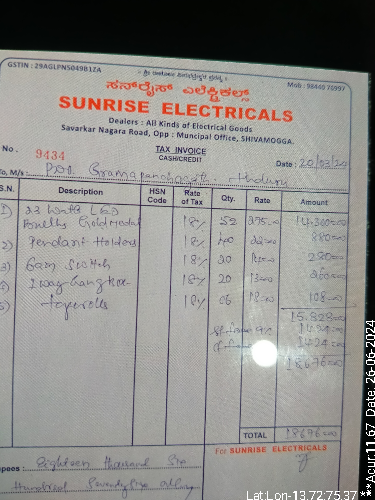 GSTIN : 29AGLPN5049B1ZA
Mob : 98440 76997
ಸನ್‌ರೈಸ್ ಎಲೆಕ್ಟ್ರಿಕಲ್ಸ್
SUNRISE ELECTRICALS
Dealers : All Kinds of Electrical Goods
Savarkar Nagara Road, Opp : Muncipal Office, SHIVAMOGGA.
TAX INVOICE
CASH/CREDIT
No. 9434 Date : 20/03/20
To, M/s : Gramapanchayath
S.N. Description HSN Code Rate of Tax Qty. Rate Amount
1) 23 watts LED 18% 52 275-00 14,300=00
Bulbs Goldmedal
2) Pendant Holders 18% 40 22-00 880=00
3) Switch 18% 20 280=00
4) 18% 20 13=00 260=00
5) 18% 06 18=00 108=00
15,828=00
9% 1424=00
1424=00
18676=00
TOTAL 18676=00
For SUNRISE ELECTRICALS
Rupees : Eighteen thousand Six
Hundred Seventy Six
Lat:Lon-13.72:75.37
***Acur:11.67 Date: 26-06-2024 ***